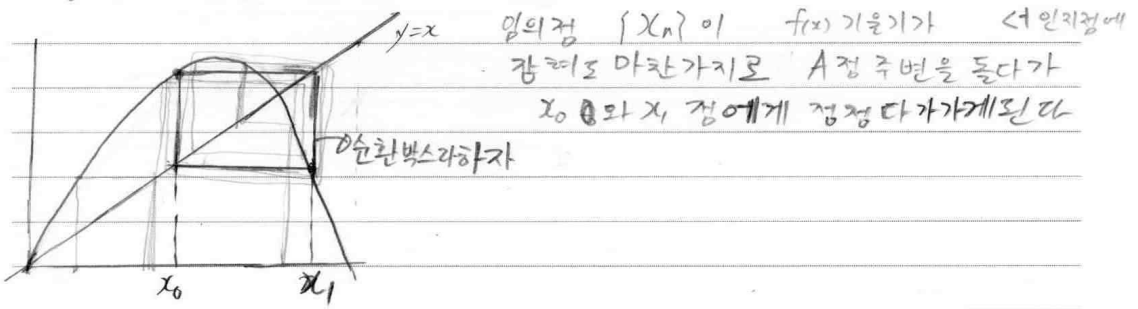 임의점 {xₙ}이 f(x) 기울기가 <1인지점에
잡혀도 마찬가지로 A점 주변을 돌다가
x₀와 x₁ 점에게 점점 다가가게된다
y=x
순환박스라하자
x₀ x₁